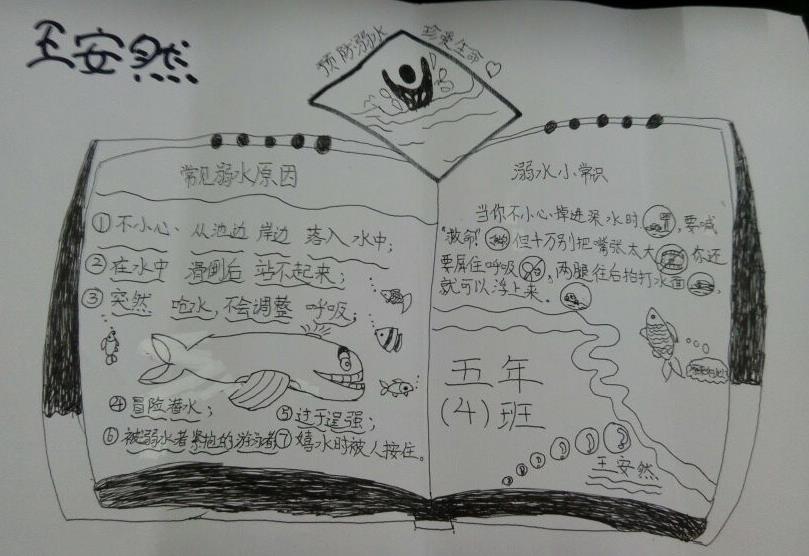 王安然
预防溺水 珍爱生命
常见溺水原因
①不小心、从池边 岸边 落入 水中;
②在水中 滑倒后 站不起来;
③突然 呛水,不会调整 呼吸;
④冒险潜水;
⑤过于逞强;
⑥被溺水者紧抱的游泳者
⑦嬉水时被人按住。
溺水小常识
当你不小心掉进深水时,要喊
"救命"但千万别把嘴张太大,你还
要屏住呼吸,两腿往后拍打水面,
就可以浮上来。
五年
(4)班
王安然